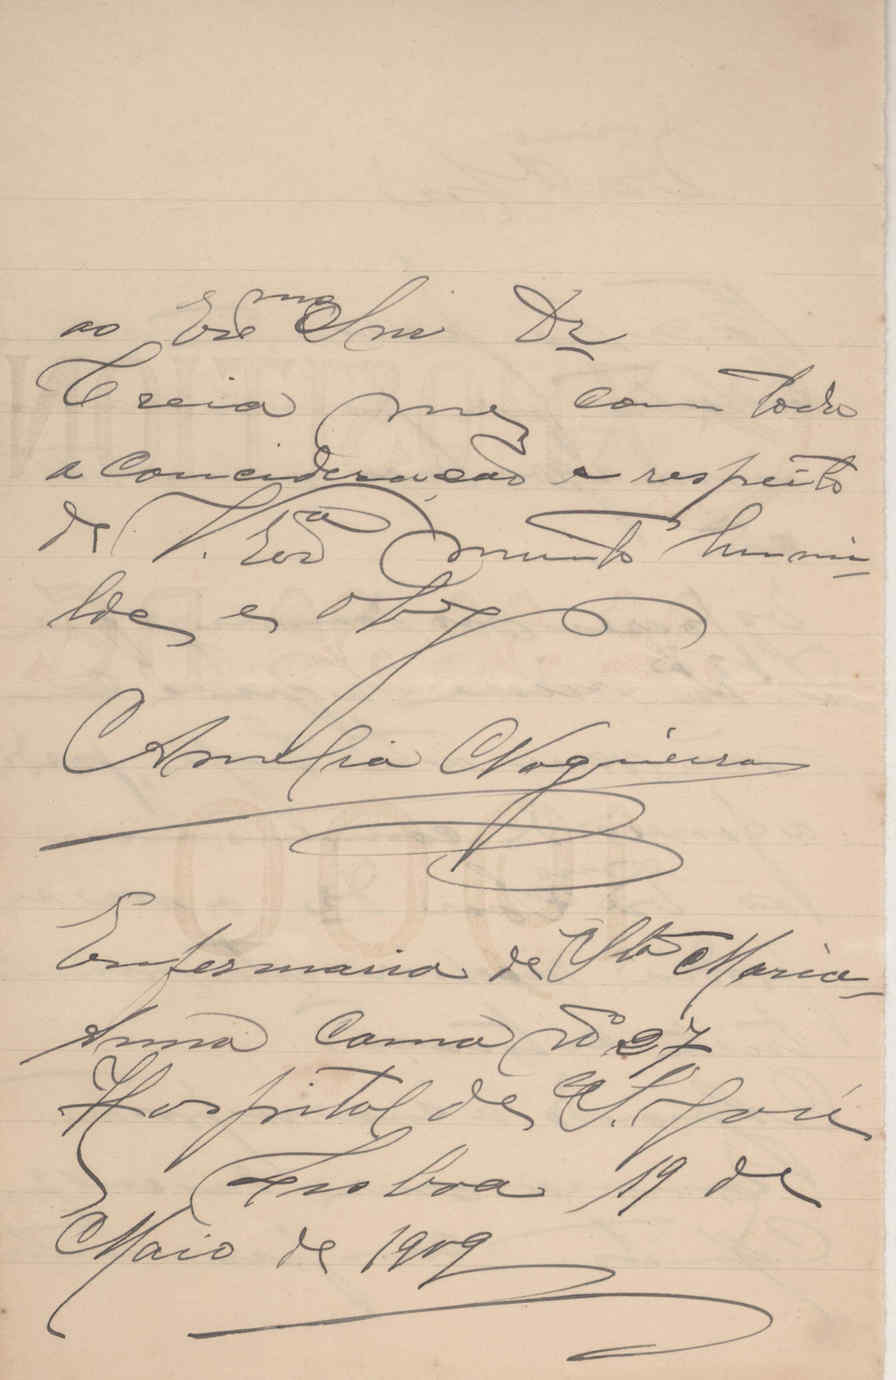 ao Exmo Snr Dr
Creia me com todo
a concideração e respeito
de V. Exa muito humi-
lde e obg
Amelia Nogueira
Enfermaria de Sta Maria
Anna Cama No 27
Hospital de S. José
Lisboa 19 de
Maio de 1909